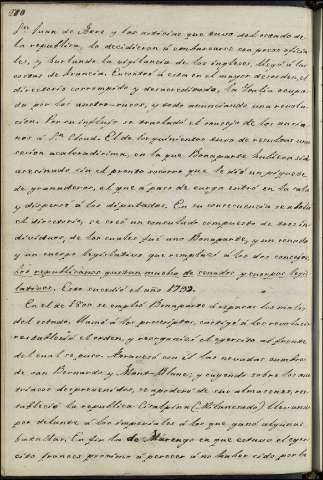 200
Sn Juan de Acre, y las noticias que tuvo del estado de
la republica, le decidieron á embarcarse con pocos oficia-
les, y burlando la vigilancia de los ingleses, llegó á las
costas de Francia. Encontró á esta en el mayor desorden, el
directorio corrompido y desacreditado, la Italia ocupa-
da por los austro-rusos, y todo anunciando una revolu-
cion. Por su influjo se trasladó el consejo de los ancia-
nos á Sn Cloud. El de los quinientos tuvo de resultas una
sesion acaloradisima, en la que Bonaparte hubiera sido
asesinado sin el pronto socorro que le dió un piquete
de granaderos, el que á paso de carga entró en la sala
y dispersó á los diputados. En su consecuencia se abolió
el directorio, se creó un consulado compuesto de tres in-
dividuos, de los cuales fué uno Bonaparte, y un senado
y un cuerpo legislativo que remplazó á los dos consejos.
Los republicanos gustan mucho de senados y cuerpos legis-
lativos. Esto sucedió el año 1799.
En el de 1800 se empleó Bonaparte á reparar los males
del estado. Llamó á los proscriptos, castigó á los revoltosos
restableció el orden, y reorganizó el ejercito al frente
del cual se puso. Atravesó con él las nevadas cumbres
de San Bernardo y Mont-Blanc, y cayendo sobre los aus-
triacos desprevenidos, se apoderó de sus almacenes, res-
tableció la republica Cisalpina (Milanesado) llevando
por delante á los imperiales á los que ganó algunas
batallas. En fin la de Marengo en que estuvo el ejer-
cito frances proximo á perecer á no haber sido por la